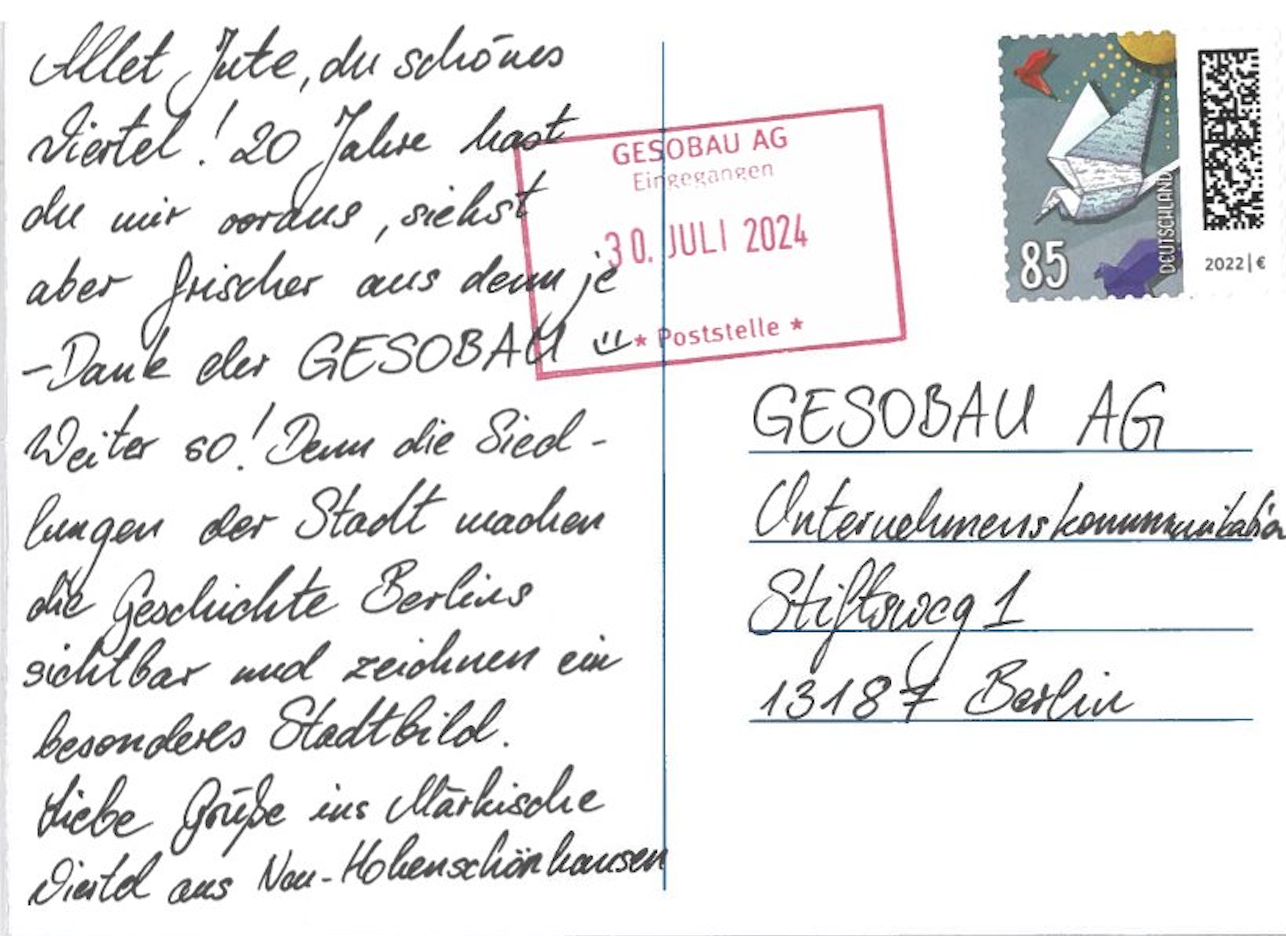 Allet Jute, du schönes
Viertel! 20 Jahre hast
du mir voraus, siehst
aber frischer aus denn je
-Dank der GESOBAU
Weiter so! Denn die Sied-
lungen der Stadt machen
die Geschichte Berlins
sichtbar und zeichnen ein
besonderes Stadtbild.
Liebe Grüße ins Märkische
Viertel aus Neu-Hohenschönhausen
GESOBAU AG
Eingegangen
30. JULI 2024
* Poststelle *
85
DEUTSCHLAND
2022|€
GESOBAU AG
Unternehmenskommunikation
Stiftsweg 1
13187 Berlin